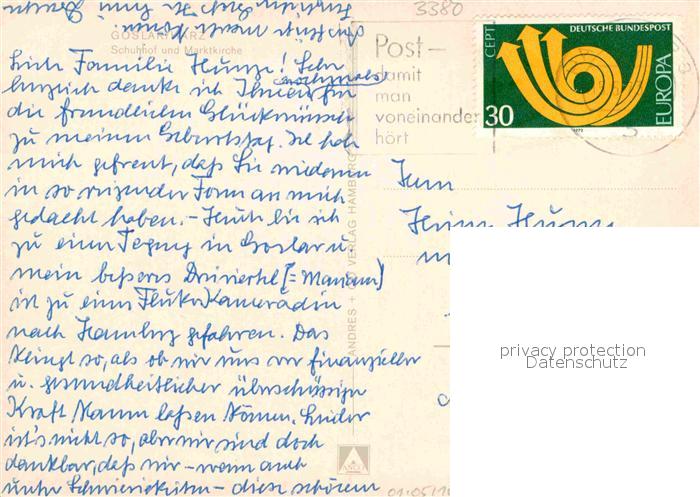 3380
GOSLAR/HARZ
Schuhhof und Marktkirche
Post-
damit
man
voneinander
hört
DEUTSCHE BUNDESPOST
CEPT
EUROPA
30
1973
Liebe Familie Hunze! Sehr
herzlich danke ich Ihnen nochmals für
die freundlichen Glückwünsche
zu meinem Geburtstag. Ich hab
mich gefreut, daß Sie wiederum
in so reizender Form an mich
gedacht haben. – Heute bin ich
zu einer Tagung in Goslar u.
mein besseres Dreiviertel (= Mariann)
ist zu einer Kameradin
nach Hamburg gefahren. Das
klingt so, als ob wir uns vor finanzieller
u. gesundheitlicher überschüssiger
Kraft kaum lassen können. Leider
ist's nicht so, aber wir sind doch
dankbar, daß wir – wenn auch
unter Schwierigkeiten – diese schönen
ANDRES + CO VERLAG HAMBURG
ANCO
Herrn
Heinz Hunze
privacy protection
Datenschutz